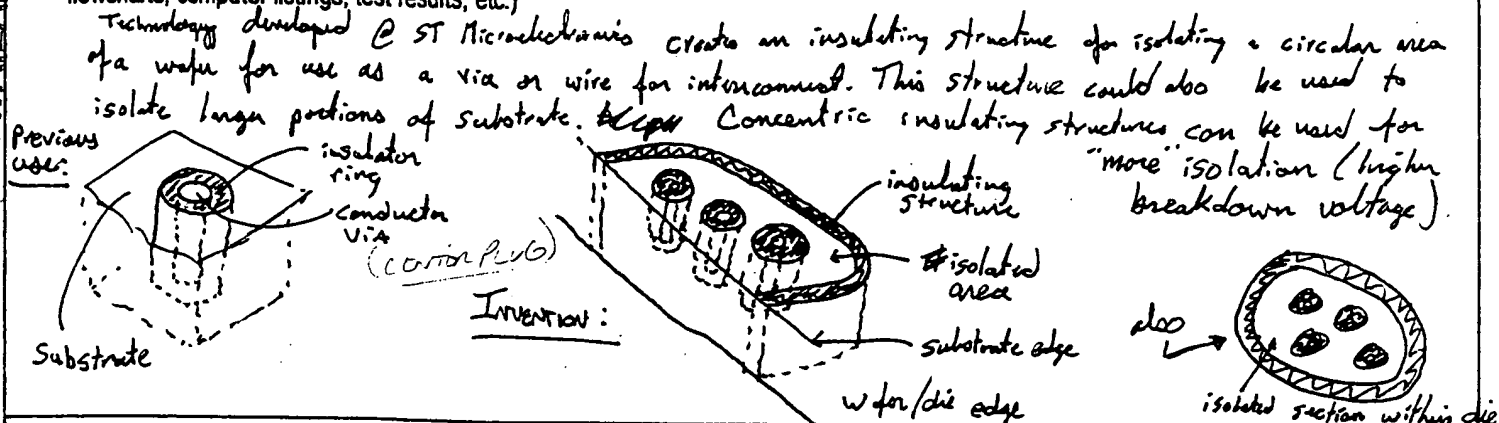 flowcharts, computer listings, test results, etc.)
Technology developed @ ST Microelectronics creates an insulating structure for isolating a circular area
of a wafer for use as a via or wire for interconnect. This structure could also be used to
isolate larger portions of substrate. Concentric insulating structures can be used for
"more" isolation (higher
breakdown voltage).
Previous
use:
insulator
ring
conductor
via
Substrate
INVENTION:
insulating
structure
isolated
area
substrate edge
wafer/die edge
also
isolated section within die